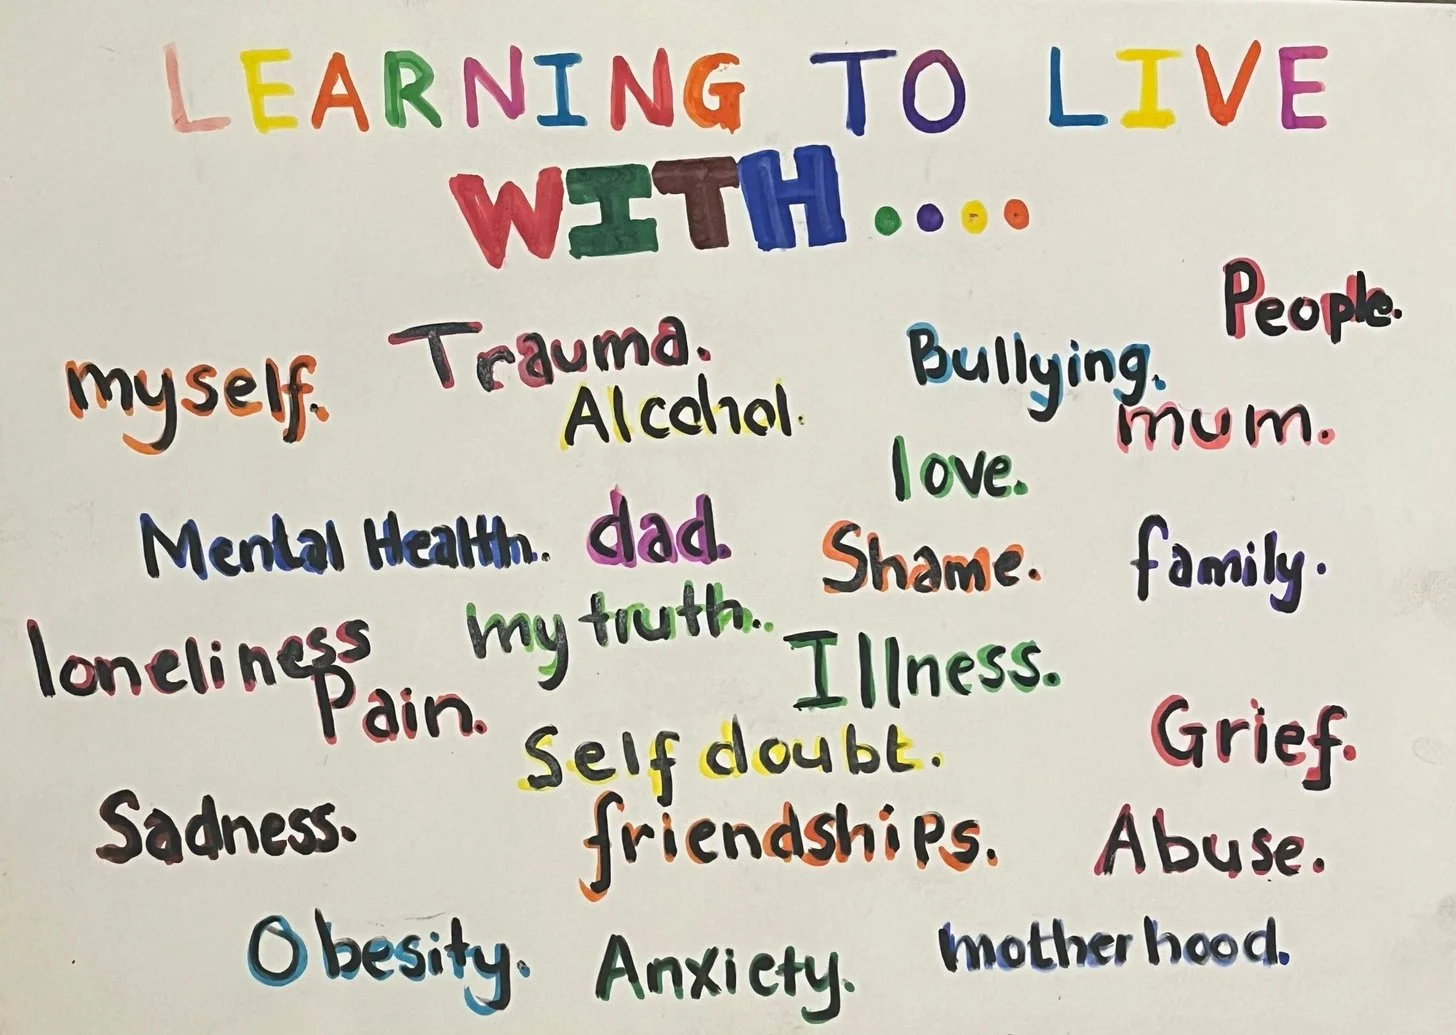 LEARNING TO LIVE
WITH....
People.
myself.
Trauma.
Bullying.
Alcohol.
mum.
love.
Mental Health.
dad.
Shame.
family.
my truth..
loneliness
Illness.
Pain.
Self doubt.
Grief.
Sadness.
friendships.
Abuse.
Obesity.
Anxiety.
motherhood.